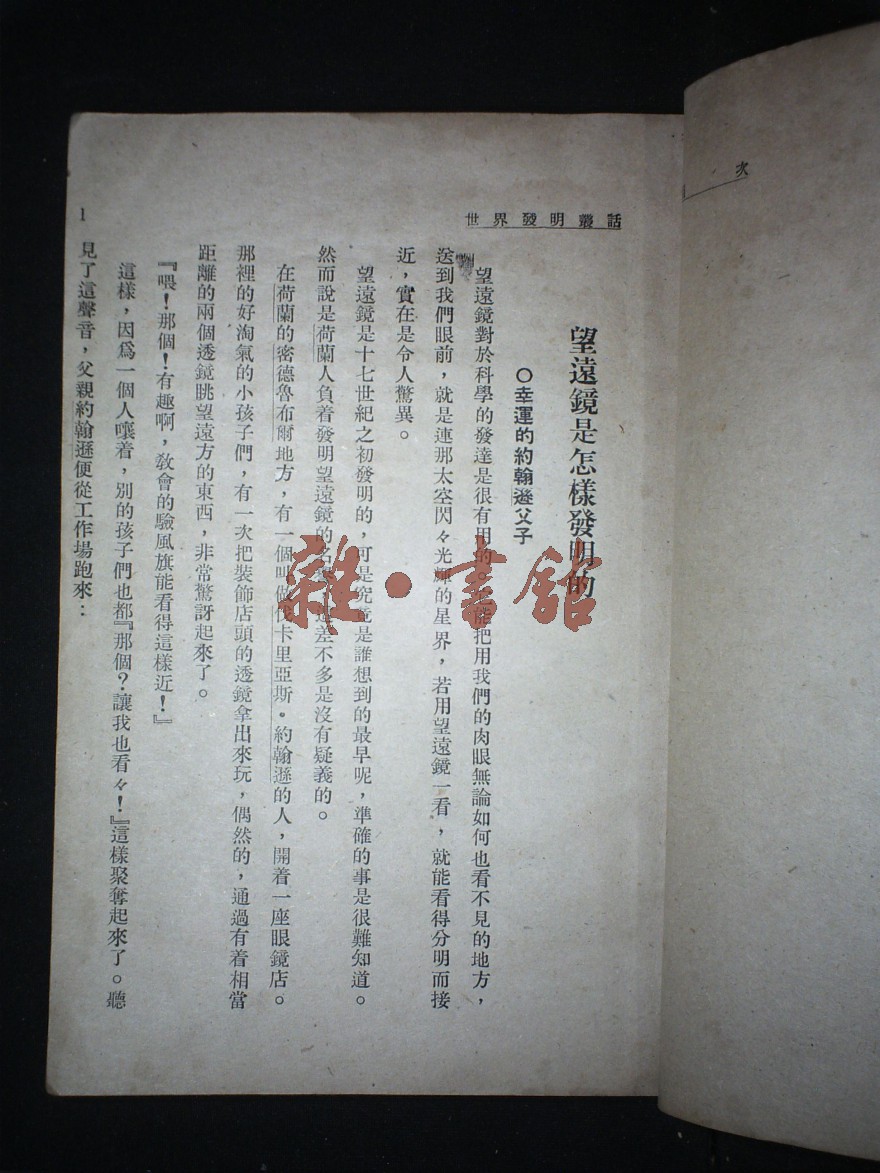 次
世界發明叢話
望遠鏡是怎樣發明的
○幸運的約翰遜父子
望遠鏡對於科學的發達是很有用的。能把用我們的肉眼無論如何也看不見的地方，
送到我們眼前，就是連那太空閃々光輝的星界，若用望遠鏡一看，就能看得分明而接
近，實在是令人驚異。
望遠鏡是十七世紀之初發明的，可是究竟是誰想到的最早呢，準確的事是很難知道。
然而說是荷蘭人負着發明望遠鏡的名 差不多是沒有疑義的。
在荷蘭的密德魯布爾地方，有一個叫做伐卡里亞斯。約翰遜的人，開着一座眼鏡店。
那裡的好淘氣的小孩子們，有一次把裝飾店頭的透鏡拿出來玩，偶然的，通過有着相當
距離的兩個透鏡眺望遠方的東西，非常驚訝起來了。
『喂！那個！有趣啊，敎會的驗風旗能看得這樣近！』
這樣，因爲一個人嚷着，別的孩子們也都『那個？讓我也看々！』這樣聚奪起來了。聽
見了這聲音，父親約翰遜便從工作場跑來：
1
雜·書館